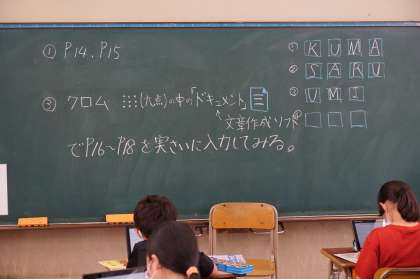 ① P14、P15
② クロム ︙︙︙(九点)の中の「ドキュメント」
↑文章作成ソフト
でP16〜P18を実さいに入力してみる。
① KUMA
② SARU
③ UMI
④